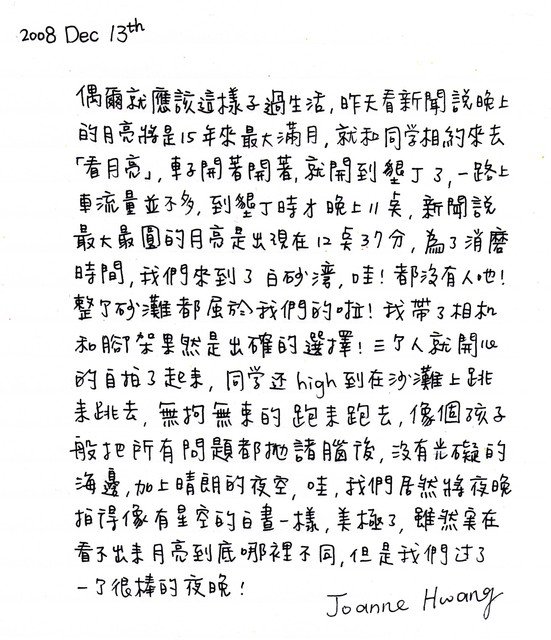 2008 Dec 13th
偶爾就應該這樣子過生活，昨天看新聞說晚上
的月亮將是15年來最大滿月，就和同学相約來去
「看月亮」，車子開著開著，就開到墾丁了，一路上
車流量並不多，到墾丁時才晚上11奌，新聞說
最大最圓的月亮是出現在12奌37分，為了消磨
時間，我們來到了白砂灣，哇！都沒有人吔！
整个砂灘都屬於我們的啦！我帶了相机
和腳架果然是正確的選擇！三个人就開心
的自拍了起來，同学还high到在沙灘上跳
來跳去，無拘無束的跑來跑去，像個孩子
般把所有問題都拋諸腦後，沒有光礙的
海邊，加上晴朗的夜空，哇，我們居然將夜晚
拍得像有星空的白晝一樣，美極了，雖然实在
看不出來月亮到底哪裡不同，但是我們过了
一个很棒的夜晚！
Joanne Hwang